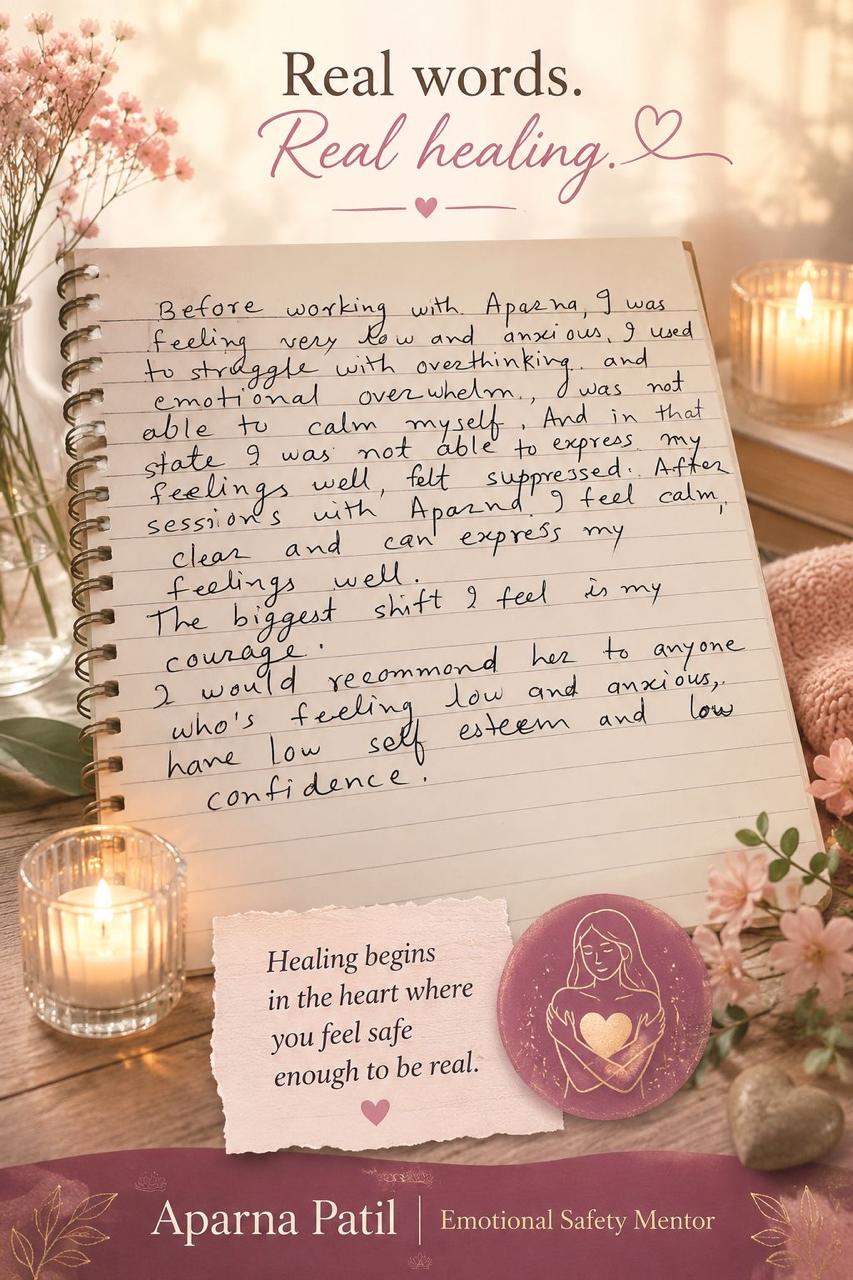 Real words.
Real healing.
Before working with Aparna, I was
feeling very low and anxious, I used
to struggle with overthinking. and
emotional overwhelm., I was not
able to calm myself, And in that
state I was not able to express my
feelings well, felt suppressed. After
sessions with Aparna I feel calm,
clear and can express my
feelings well.
The biggest shift I feel is my
courage.
I would recommond her to anyone
who's feeling low and anxious,
have low self esteem and low
confidence.
Healing begins
in the heart where
you feel safe
enough to be real.
Aparna Patil | Emotional Safety Mentor